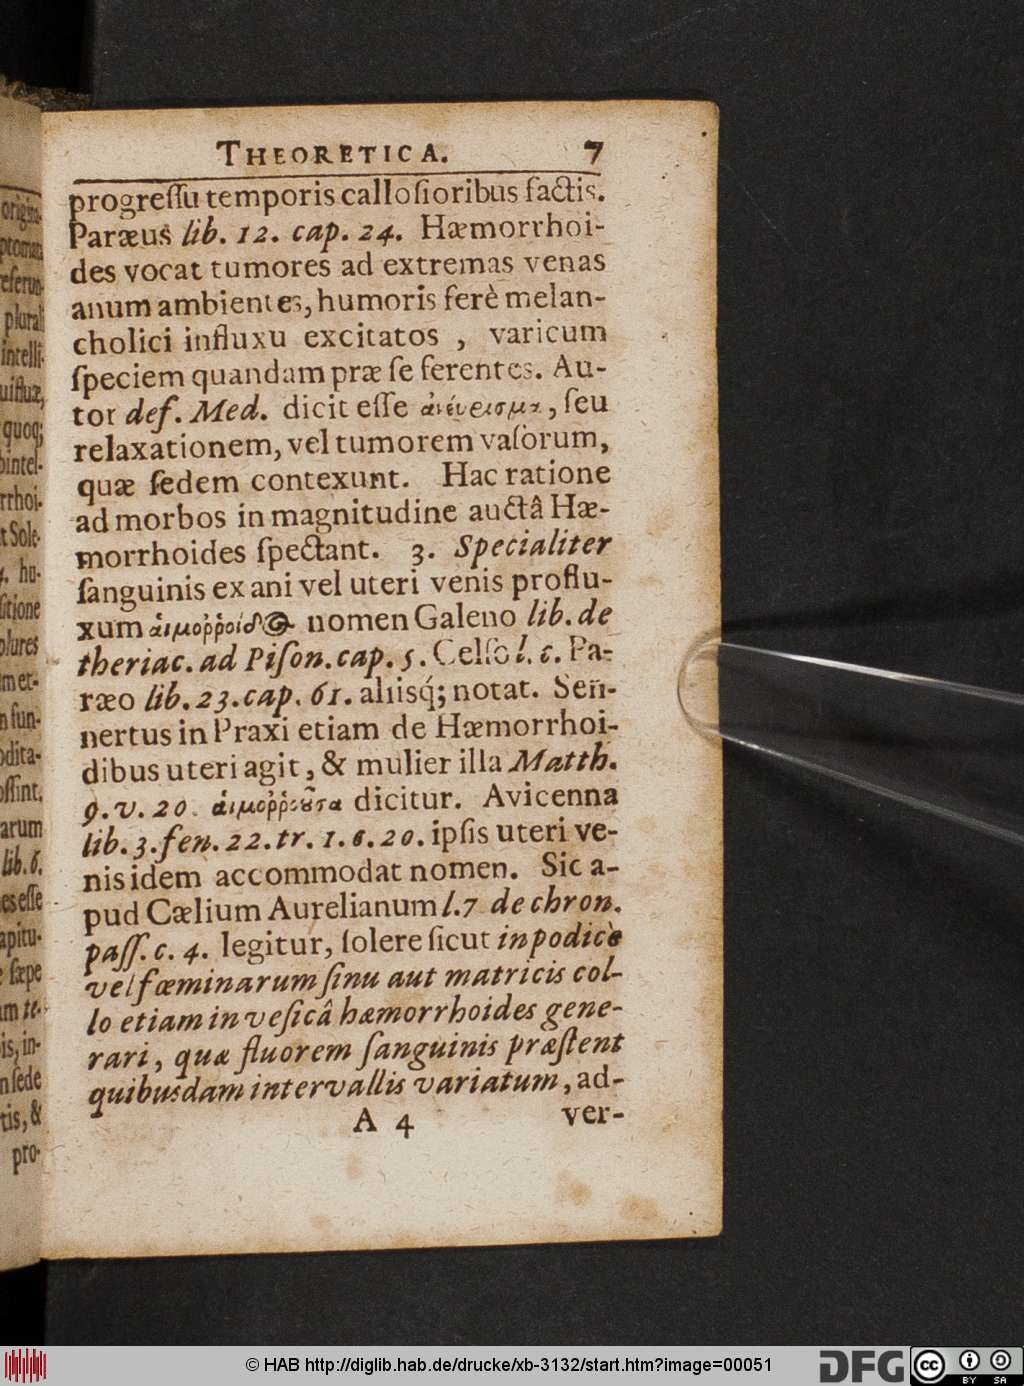 THEORETICA. 7
progreſſu temporis calloſioribus factis.
Paræus lib. 12. cap. 24. Hæmorrhoi-
des vocat tumores ad extremas venas
anum ambientes, humoris ferè melan-
cholici influxu excitatos , varicum
ſpeciem quandam præ ſe ferentes. Au-
tor def. Med. dicit eſſe , ſeu
relaxationem, vel tumorem vaſorum,
quæ ſedem contexunt. Hac ratione
ad morbos in magnitudine auctâ Hæ-
morrhoides ſpectant. 3. Specialiter
ſanguinis ex ani vel uteri venis proflu-
xum nomen Galeno lib. de
theriac. ad Piſon. cap. 5. Celſo l. c. Pa-
ræo lib. 23. cap. 61. aliisq́; notat. Sen-
nertus in Praxi etiam de Hæmorrhoi-
dibus uteri agit, & mulier illa Matth.
9. v. 20. dicitur. Avicenna
lib. 3. fen. 22. tr. 1. 6. 20. ipſis uteri ve-
nis idem accommodat nomen. Sic a-
pud Cælium Aurelianum l. 7 de chron.
paſſ. c. 4. legitur, ſolere ſicut in podice
vel fœminarum ſinu aut matricis col-
lo etiam in veſicâ hæmorrhoides gene-
rari, quæ fluorem ſanguinis præſtent
quibusdam intervallis variatum, ad-
A 4 ver-
© HAB http://diglib.hab.de/drucke/xb-3132/start.htm?image=00051
DFG
cc BY SA